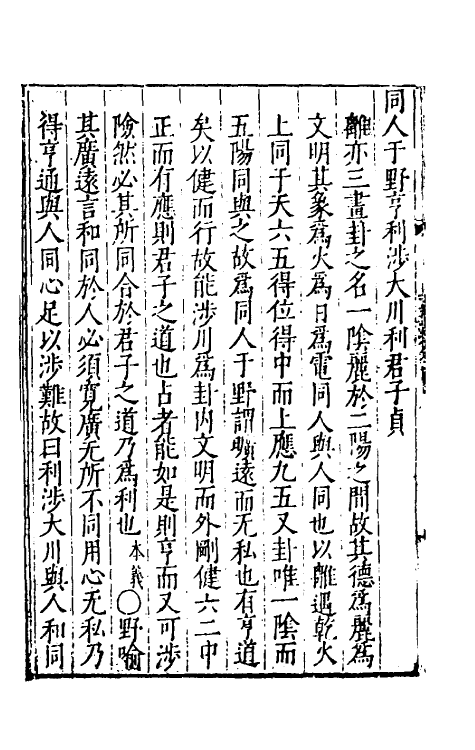 同人于野亨利涉大川利君子貞
離亦三畫卦之名一陰麗於二陽之間故其德爲麗爲
文明其象爲火爲日爲電同人與人同也以離遇乾火
上同于天六五得位得中而上應九五又卦唯一陰而
五陽同與之故爲同人于野謂曠遠而无私也有亨道
矣以健而行故能涉川爲卦內文明而外剛健六二中
正而有應則君子之道也占者能如是則亨而又可涉
險然必其所同合於君子之道乃爲利也本義〇野喻
其廣遠言和同於人必須寬廣无所不同用心无私乃
得亨通與人同心足以涉難故曰利涉大川與人和同